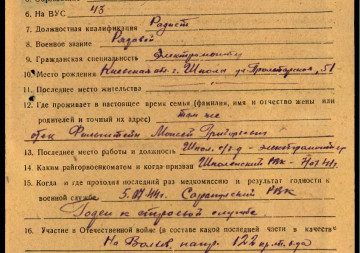 6. На ВУС 43
7. Должностная квалификация Радист
8. Военное звание Рядовой
9. Гражданская специальность Электромонтер
10. Место рождения Киевская обл. г. Шпола ул. Пролетарская, 51
11. Последнее место жительства
12. Где проживает в настоящее время семья (фамилия, имя и отчество жены или
родителей и точный на адрес) там же
отец Моисей Григорьевич
13. Последнее место работы и должность электромонтер
14. Каким райгорвоенкоматом и когда призван Шполянский РВК
15. Когда и где проходил последний раз медкомиссию и результат годности к
военной службе РВК
Годен к строевой службе
16. Участие в Отечественной войне (в составе какой последней части в качестве